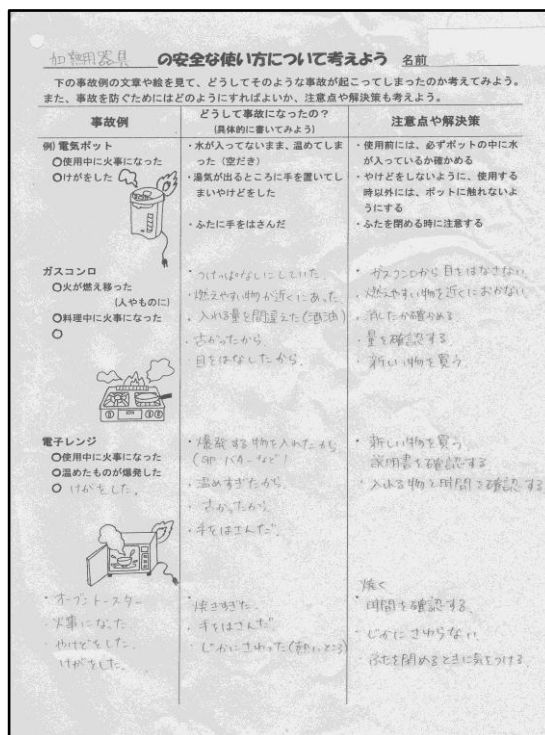 加熱用器具 の安全な使い方について考えよう 名前
下の事故例の文章や絵を見て、どうしてそのような事故が起こってしまったのか考えてみよう。
また、事故を防ぐためにはどのようにすればよいか、注意点や解決策も考えよう。
事故例
どうして事故になったの?
(具体的に書いてみよう)
注意点や解決策
例)電気ポット
○使用中に火事になった
○けがをした
・水が入ってないまま、温めてしまった(空だき)
・湯気が出るところに手を置いてしまいやけどをした
・ふたに手をはさんだ
・使用前には、必ずポットの中に水が入っているか確かめる
・やけどをしないように、使用する時以外には、ポットに触れないようにする
・ふたを閉める時に注意する
ガスコンロ
○火が燃え移った
(人やものに)
○料理中に火事になった
○
・つけっぱなしにしていた。
・燃えやすい物が近くにあった。
・入れる量を間違えた(酒油)
・古かったから。
・目をはなしたから。
・ガスコンロから目をはなさない
・燃えやすい物を近くにおかない
・消したか確かめる。
・量を確認する。
・新しい物を買う。
電子レンジ
○使用中に火事になった
○温めたものが爆発した
○けがをした。
・爆発する物を入れたから
(卵・バターなど)
・温めすぎたから。
・古かったから。
・手をはさんだ。
・新しい物を買う。
説明書を確認する
・入れる物と時間を確認する
・オーブントースター
・火事になった
・やけどをした。
けがをした。
・焼きすぎた。
・手をはさんだ。
・じかにさわった(熱いところ)
焼く
・時間を確認する。
・じかにさわらない。
・ふたを閉めるときに気をつける